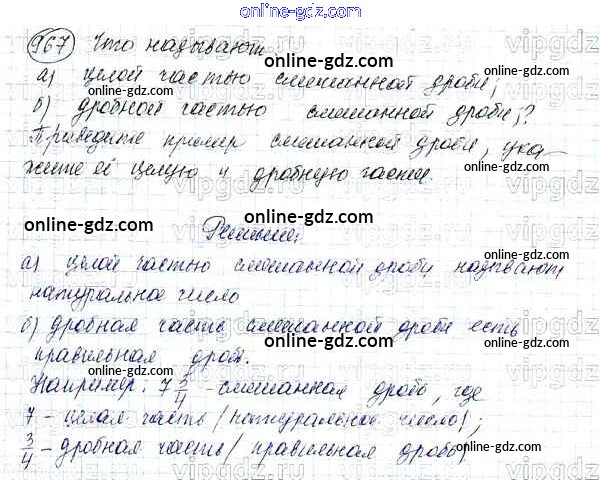 967 Что называют
а) целой частью смешанной дроби;
б) дробной частью смешанной дроби;?
Приведите пример смешанной дроби, ука
жите её целую и дробную части.
Решение:
а) целой частью смешанной дроби называют
натуральное число
б) дробная часть смешанной дроби есть
правильная дробь.
Например: 7 3/4 - смешанная дробь, где
7 - целая часть (натуральное число);
3/4 - дробная часть (правильная дробь)
online-gdz.com
online-gdz.com
online-gdz.com
online-gdz.com
online-gdz.com
online-gdz.com
online-gdz.com
online-gdz.com
online-gdz.com
online-gdz.com
online-gdz.com
online-gdz.com